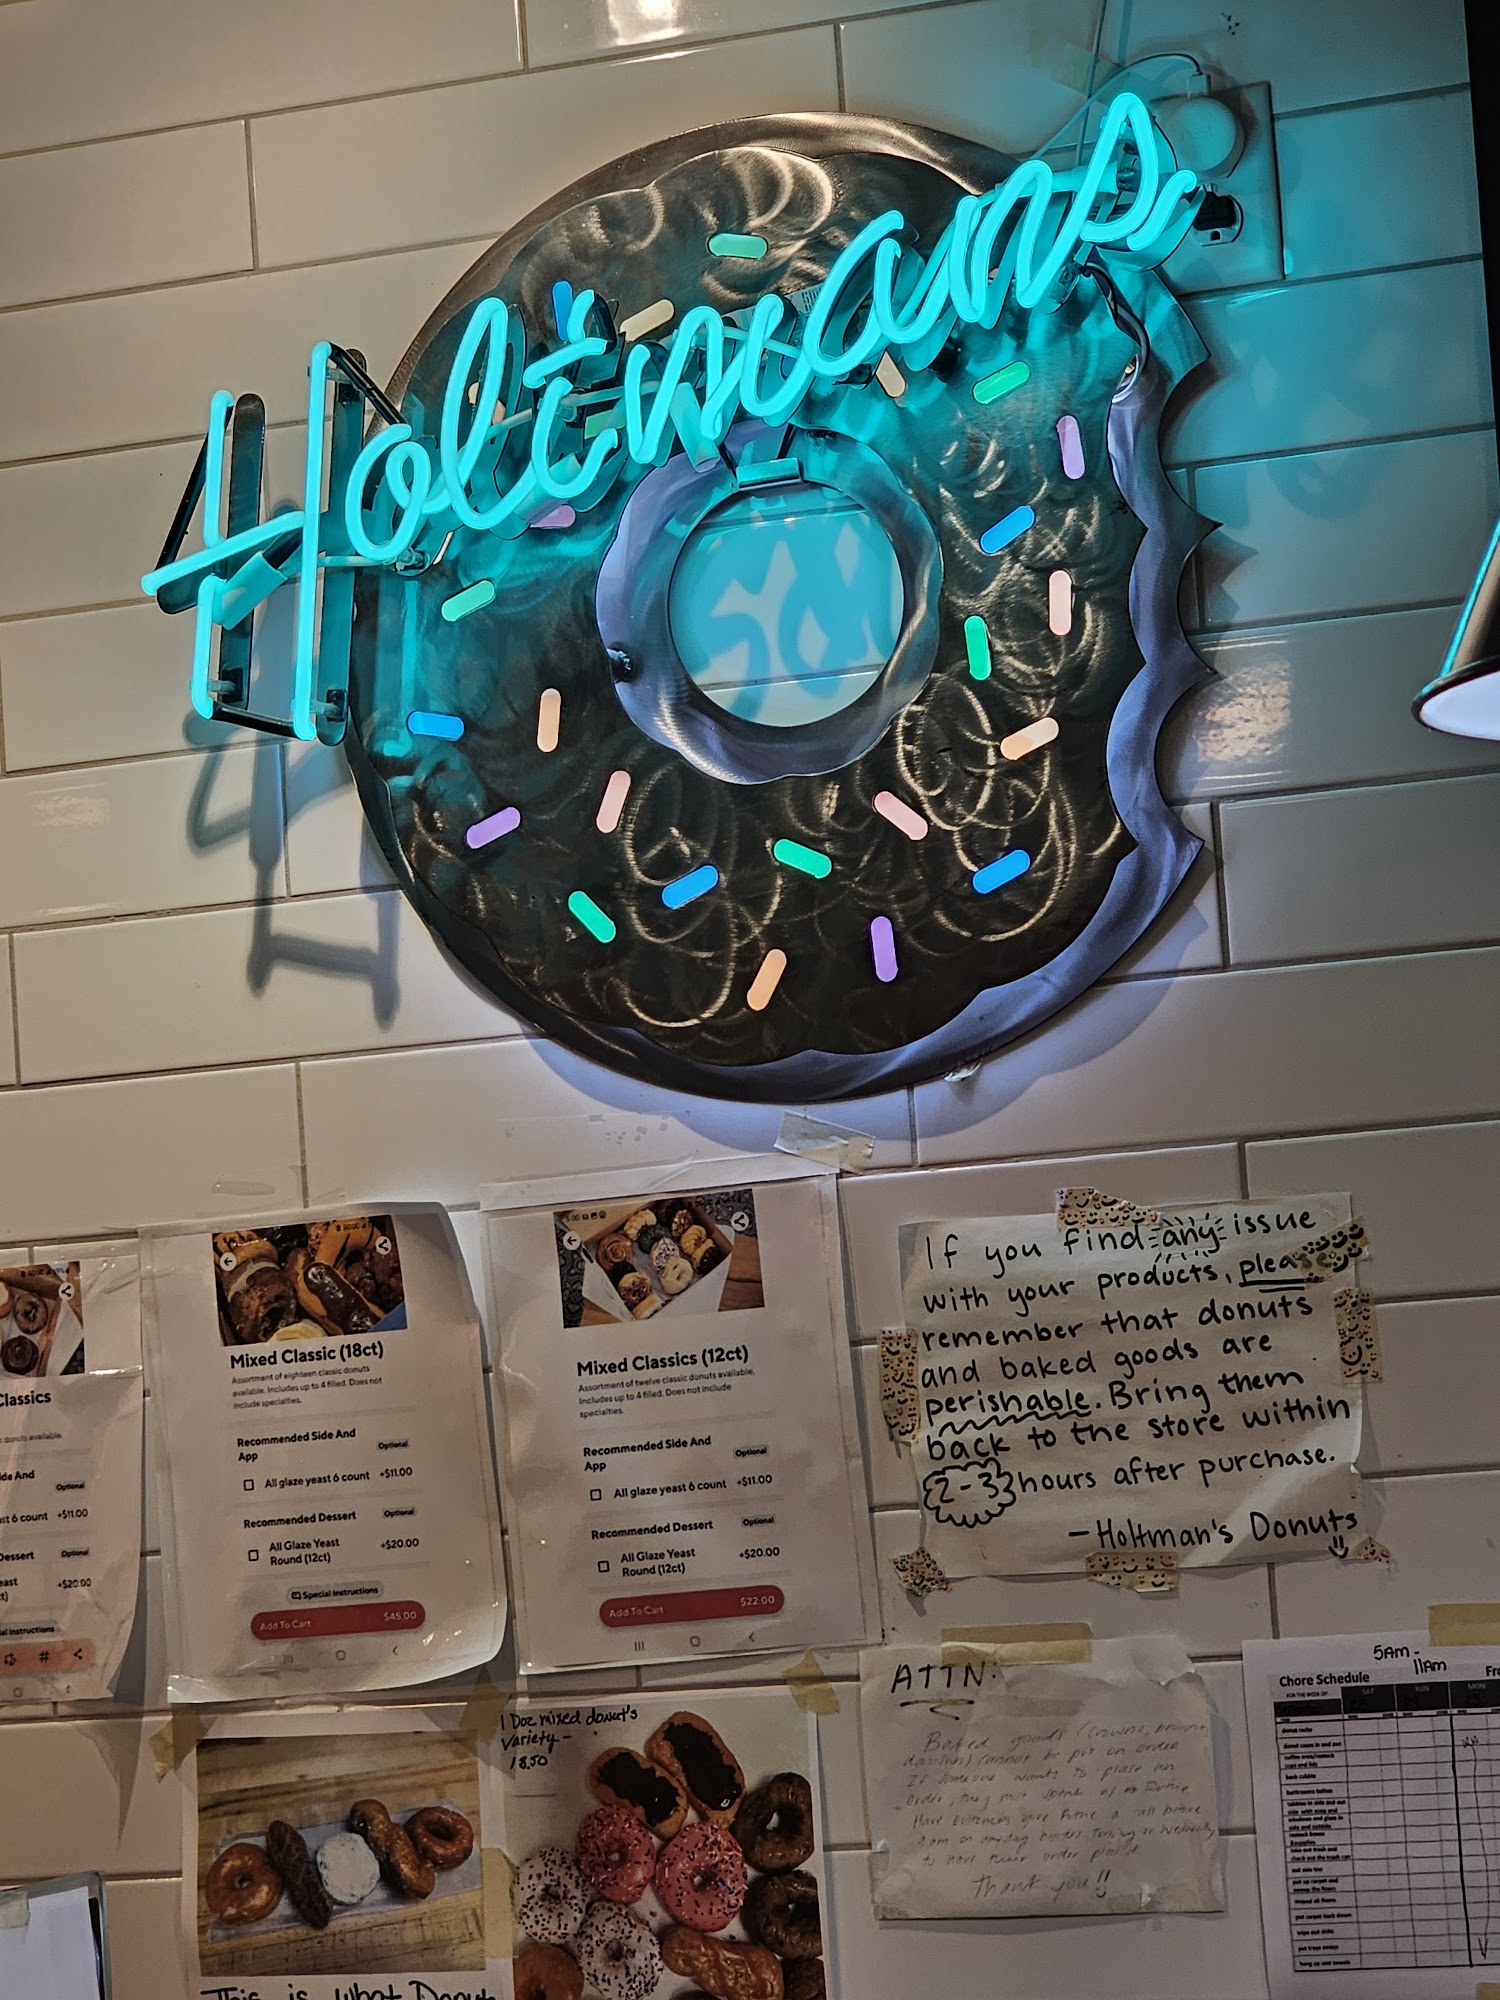 Holtmans
If you find any issue
with your products, please
remember that donuts
and baked goods are
perishable. Bring them
back to the store within
2-3 hours after purchase.
- Holtman's Donuts
Classics
donuts available.
Side And
Optional
+$11.00
Dessert
Optional
+$20.00
Mixed Classic (18ct)
Assortment of eighteen classic donuts
available. Includes up to 4 filled. Does not
include specialties.
Recommended Side And
App
Optional
All glaze yeast 6 count +$11.00
Recommended Dessert Optional
All Glaze Yeast
Round (12ct)
+$20.00
Special Instructions
Add To Cart $45.00
Mixed Classics (12ct)
Assortment of twelve classic donuts available.
Includes up to 4 filled. Does not include
specialties.
Recommended Side And
App
Optional
All glaze yeast 6 count +$11.00
Recommended Dessert Optional
All Glaze Yeast
Round (12ct)
+$20.00
Add To Cart $22.00
1 Doz mixed donut's
Variety -
18.50
This is what Donut
ATTN:
Baked goods
cannot be put on order
If someone wants to place an
order, they must speak
Have customers give a call before
to have their order placed
Thank you!!
5Am -
11Am
Chore Schedule
FOR THE WEEK OF:
SAT SUN MON
donut racks
donut cases in and out
back cubbie
bathrooms
out side too
mop all floors
wipe out sinks
put trays away